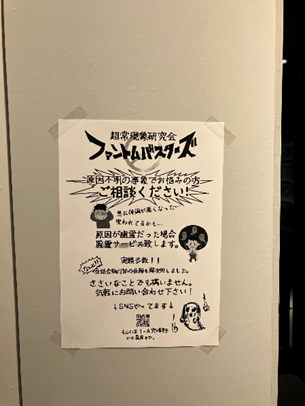 超常現象研究会
ファントムバスターズ
原因不明の事象でお悩みの方
ご相談ください!
急に体調が悪くなった…
呪われてるかも…
原因が幽霊だった場合
除霊サービス致します。
実績多数!!
ささいなことでも構いません。
気軽にお問い合わせ下さい!
↓SNSやってます↓